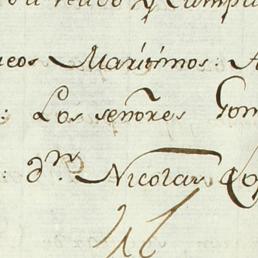 y Cumpl
eos Maritimos: A
: Los señores Gom
: Dn Nicolas Lo